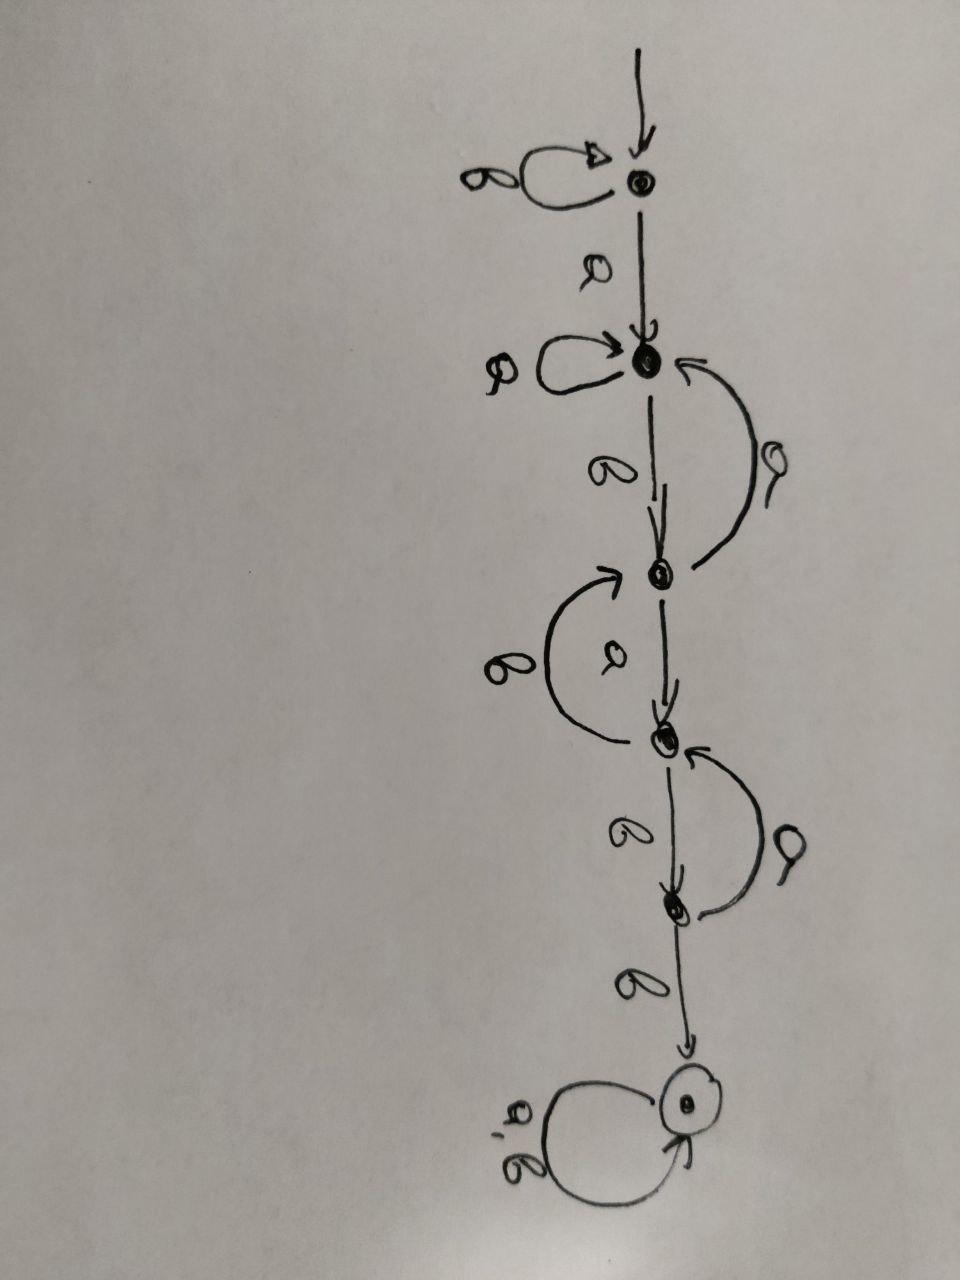 a a
a b a b b
b a b a, b